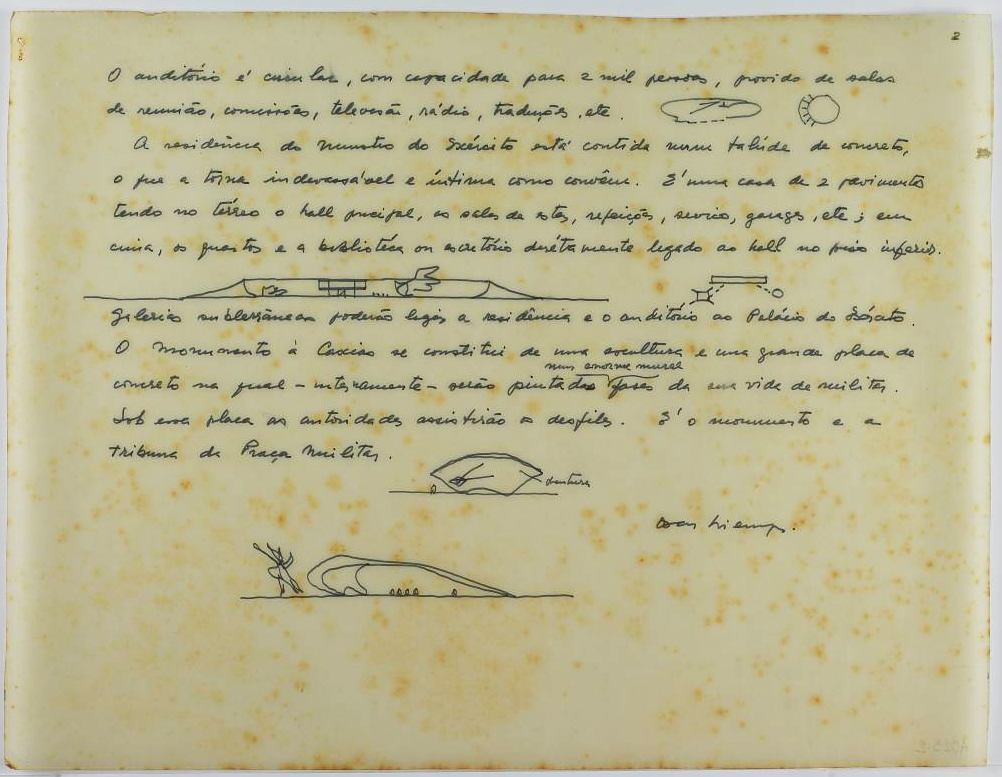 2
O auditório é circular, com capacidade para 2 mil pessoas, provido de salas
de reunião, comissões, televisão, rádio, traduções, etc.
A residência do Ministro do Exército está contida num talúde de concreto,
o que a torna indevassável e íntima como convém. É uma casa de 2 pavimentos
tendo no térreo o hall principal, as salas de estar, refeições, serviço, garages, etc; em
cima, os quartos e a biblioteca ou escritório diretamente ligado ao hall no piso inferior.
Galerias subterrâneas poderão ligar a residência e o auditório ao Palácio do Exército.
O monumento à Caxias se constitui de uma escultura e uma grande placa de
num enorme mural
concreto na qual – internamente – serão pintadas fases da sua vida de militar.
Sob essa placa as autoridades assistirão os desfiles. É o monumento e a
tribuna da Praça Militar.
pintura